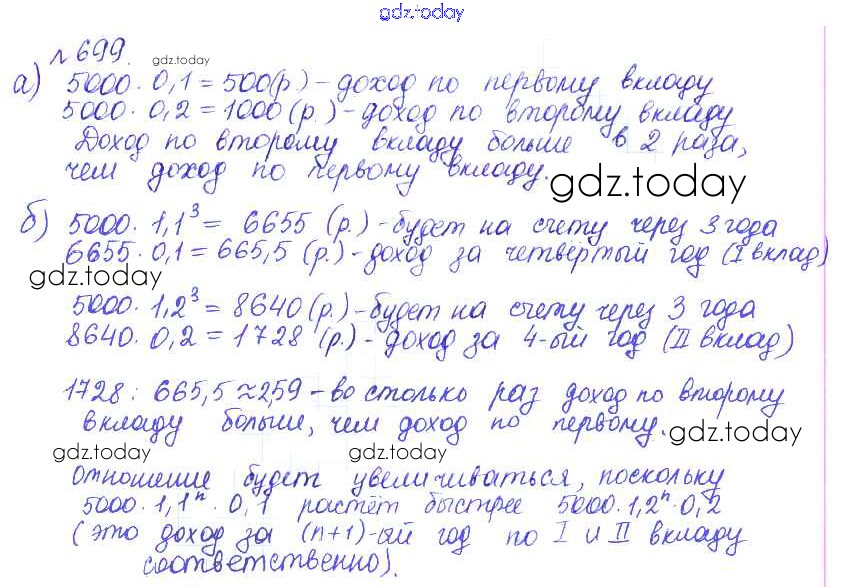 gdz.today
№ 699. gdz.today
а) 5000 · 0,1 = 500 (р.) - доход по первому вкладу
5000 · 0,2 = 1000 (р.) - доход по второму вкладу
Доход по второму вкладу больше в 2 раза,
чем доход по первому вкладу.
gdz.today
б) 5000 · 1,1³ = 6655 (р.) - будет на счету через 3 года
6655 · 0,1 = 665,5 (р.) - доход за четвёртый год (I вклад)
gdz.today
5000 · 1,2³ = 8640 (р.) - будет на счету через 3 года
8640 · 0,2 = 1728 (р.) - доход за 4-ый год (II вклад)
1728 : 665,5 ≈ 2,59 - во столько раз доход по второму
вкладу больши, чем доход по первому.
gdz.today gdz.today gdz.today
Отношение будет увеличиваться, поскольку
5000 · 1,1ⁿ · 0,1 растёт быстрее 5000 · 1,2ⁿ · 0,2
(это доход за (n+1)-ый год по I и II вкладу
соответственно).